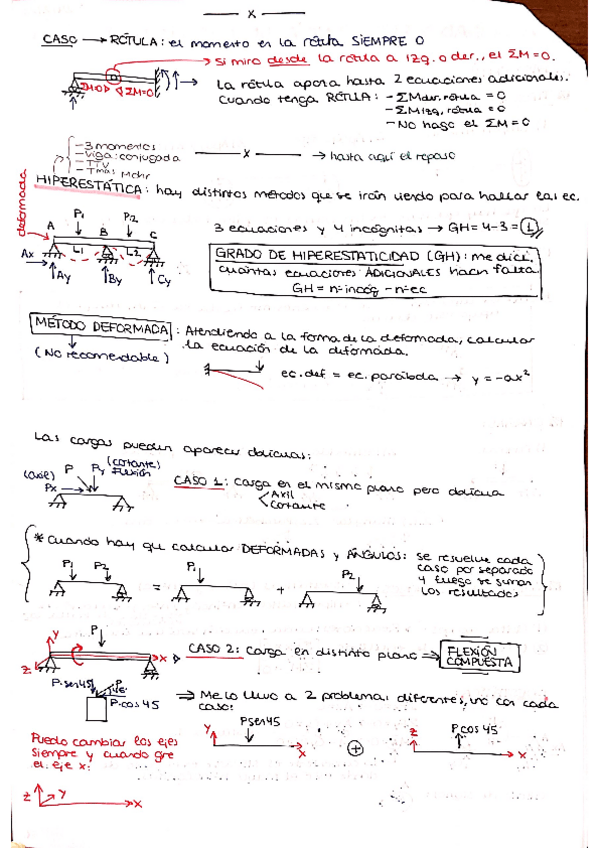 x
CASO → RÓTULA: el momento en la rótula SIEMPRE 0
→ Si miro desde la rótula a izq. o der., el ΣM=0.
ΣM=0 ΣM=0
La rótula aporta hasta 2 ecuaciones adicionales.
Cuando tenga RÓTULA: - ΣMder. rótula = 0
- ΣMizq. rótula = 0
- No hago el ΣM=0
- 3 momentos
- Viga conjugada
- TTV
- Tmas Mohr
x → hasta aquí el repaso
HIPERESTÁTICA: hay distintos métodos que se irán viendo para hallar las ec.
deformada
A P1 B P2 C
L1 L2
Ax Ay By Cy
3 ecuaciones y 4 incógnitas → GH = 4-3 = 1
GRADO DE HIPERESTATICIDAD (GH): me dice
cuántas ecuaciones ADICIONALES hacen falta
GH = nºincóg - nºec
MÉTODO DEFORMADA: Atendiendo a la forma de la deformada, calcular
la ecuación de la deformada.
(No recomendable)
ec. def = ec. parábola → y = -ax²
Las cargas pueden aparecer oblicuas:
(axil) P Py (cortante) Flexión
Px
CASO 1: Carga en el mismo plano pero oblicua
Axil
Cortante
* Cuando hay que calcular DEFORMADAS y ÁNGULOS: se resuelve cada
caso por separado
y luego se suman
los resultados
P1 P2 = P1 + P2
y P x z
CASO 2: Carga en distinto plano → FLEXIÓN
COMPUESTA
P·sen45 P 45º
P·cos45
⇒ Me lo llevo a 2 problemas diferentes, uno con cada
caso:
Puedo cambiar los ejes
siempre y cuando gire
el eje x:
y Psen45 x + z Pcos45 x
z y x